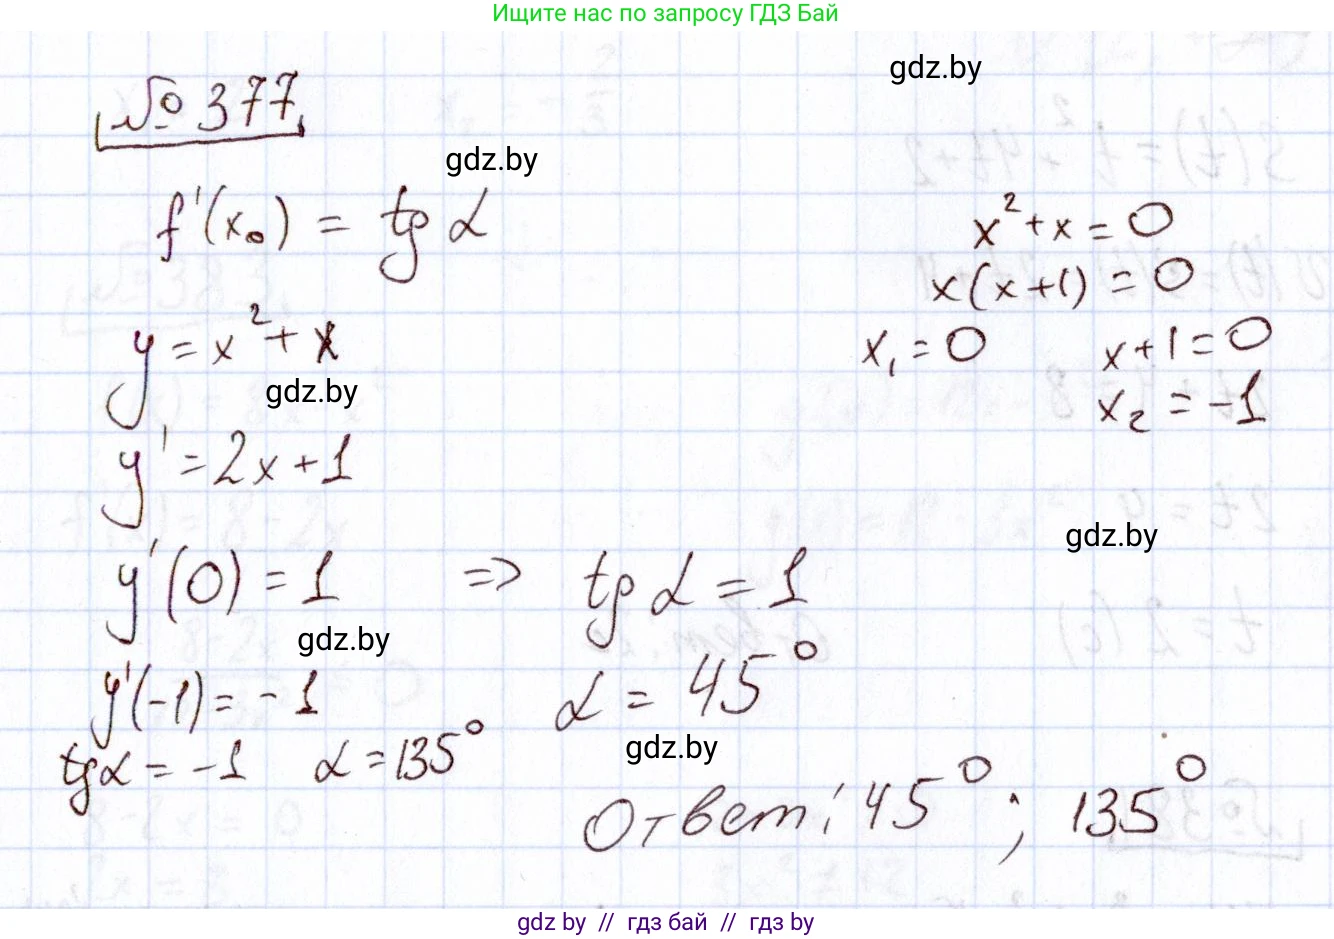 Ищите нас по запросу ГДЗ Бай
gdz.by
№ 377
gdz.by
f'(x₀) = tg α
x² + x = 0
x(x+1) = 0
y = x² + x
x₁ = 0 x+1 = 0
gdz.by
x₂ = -1
y' = 2x + 1
gdz.by
y'(0) = 1 => tg α = 1
gdz.by
α = 45°
y'(-1) = -1
gdz.by
tg α = -1 α = 135°
Ответ: 45°; 135°
gdz.by // гдз бай // гдз by